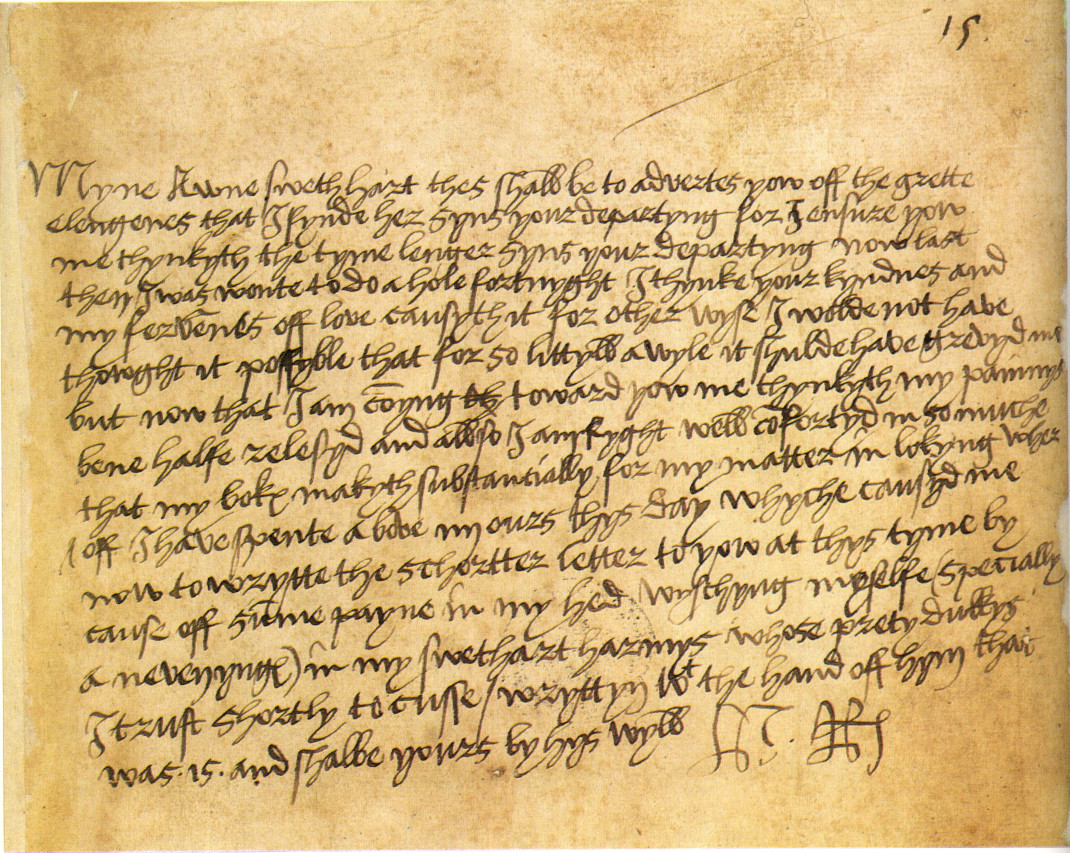 15.
Myne Awne swethhart thes shall be to advertes yow off the grette
elengenes that I fynde her syns your departyng for I ensure yow
me thynkyth the tyme lenger syns your departyng now last
then I was wonte to do a hole fortnyght I thynke your kyndnes and
my fervēnes off love causyth it for other wyse I wolde not have
thowght it possyble that for so littyll a wyle it shulde have grevyd me
but now that I am cōyng toward yow me thynkyth my painnys
bene halfe relesyd and allso I am ryght well cōfortyd in so muche
that my boke makyth substantially for my matter in lokyng wher
off I have spente above iiij ours thys day whyche causyd me
now to wrytte the schortter letter to yow at thys tyme by
cause off sūme payne in my hed / wyschyng myselfe (specially
a nevenynge) in my swethart harmys whose prety dukkys
I trust shortly to cusse / wryttyn wt the hand off hym that
was .is. and shalbe yours by hys wyll H. Rx